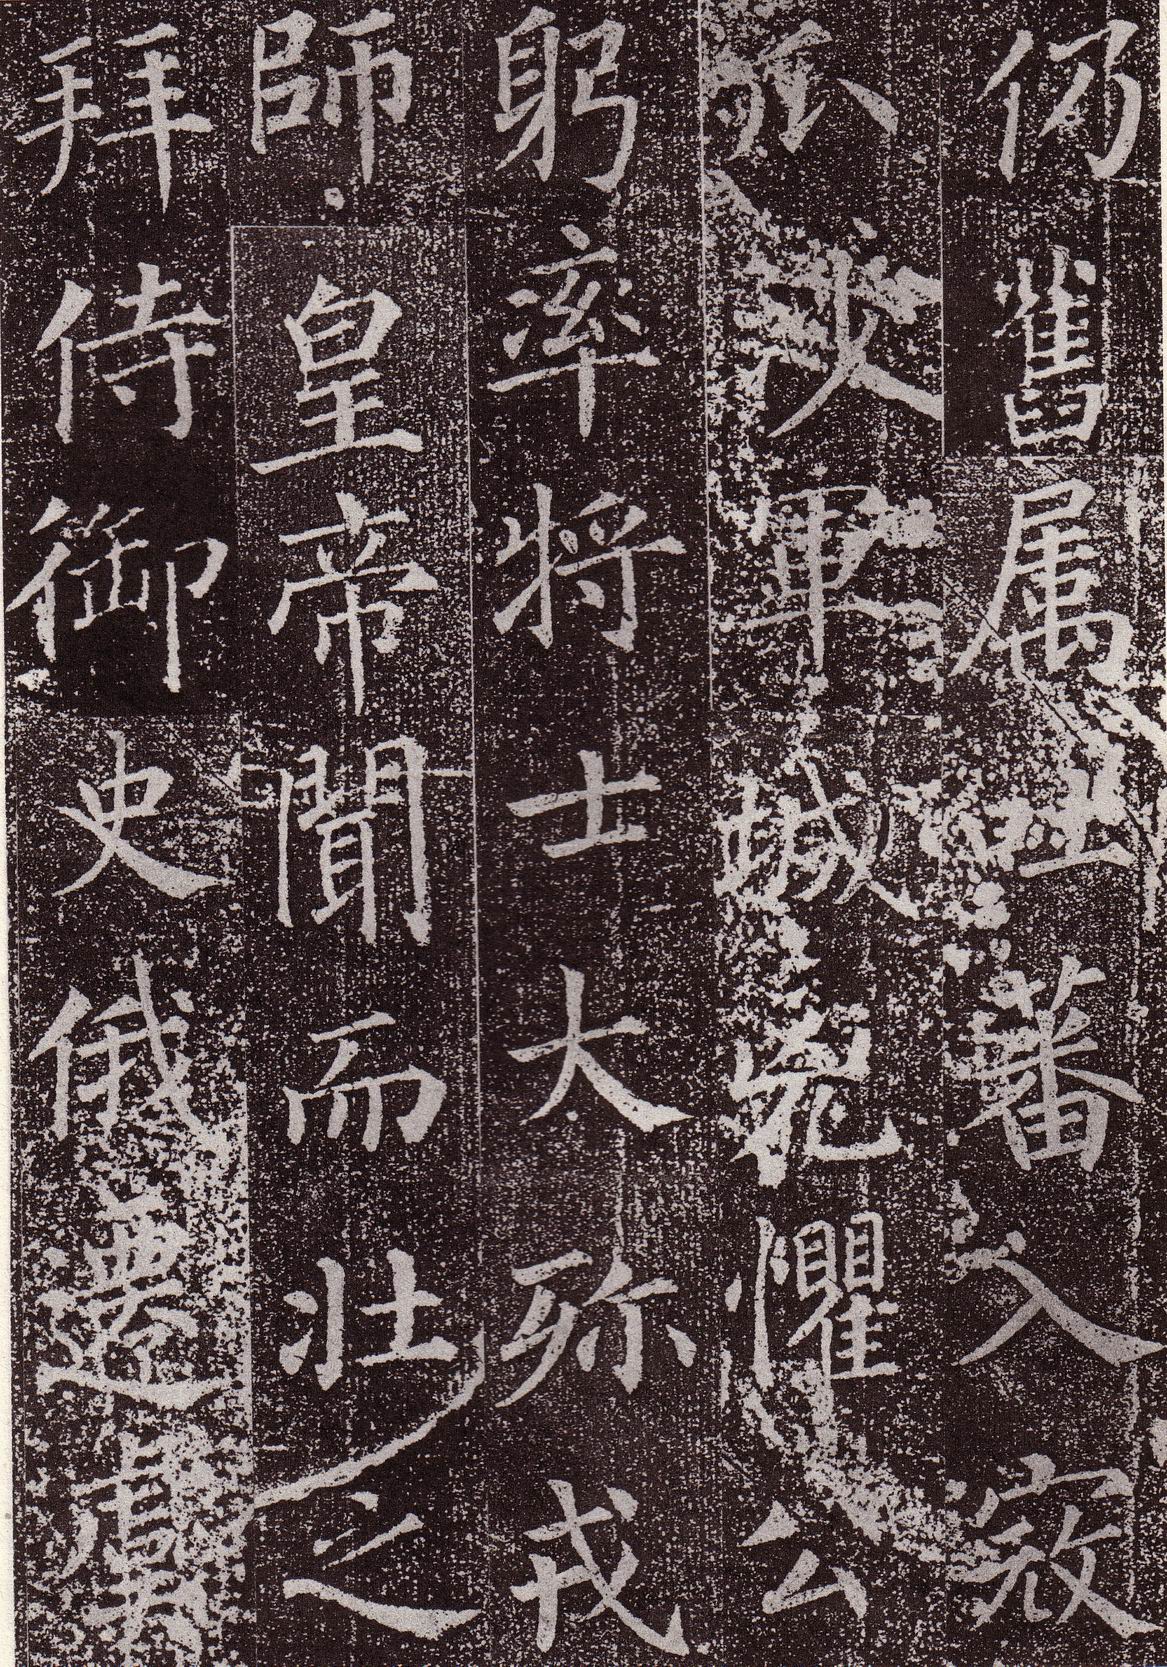 仍舊属吐蕃入寇
軍城兇懼公
躬率将士大殄戎
師皇帝聞而壯之
拜侍御史俄遷虞